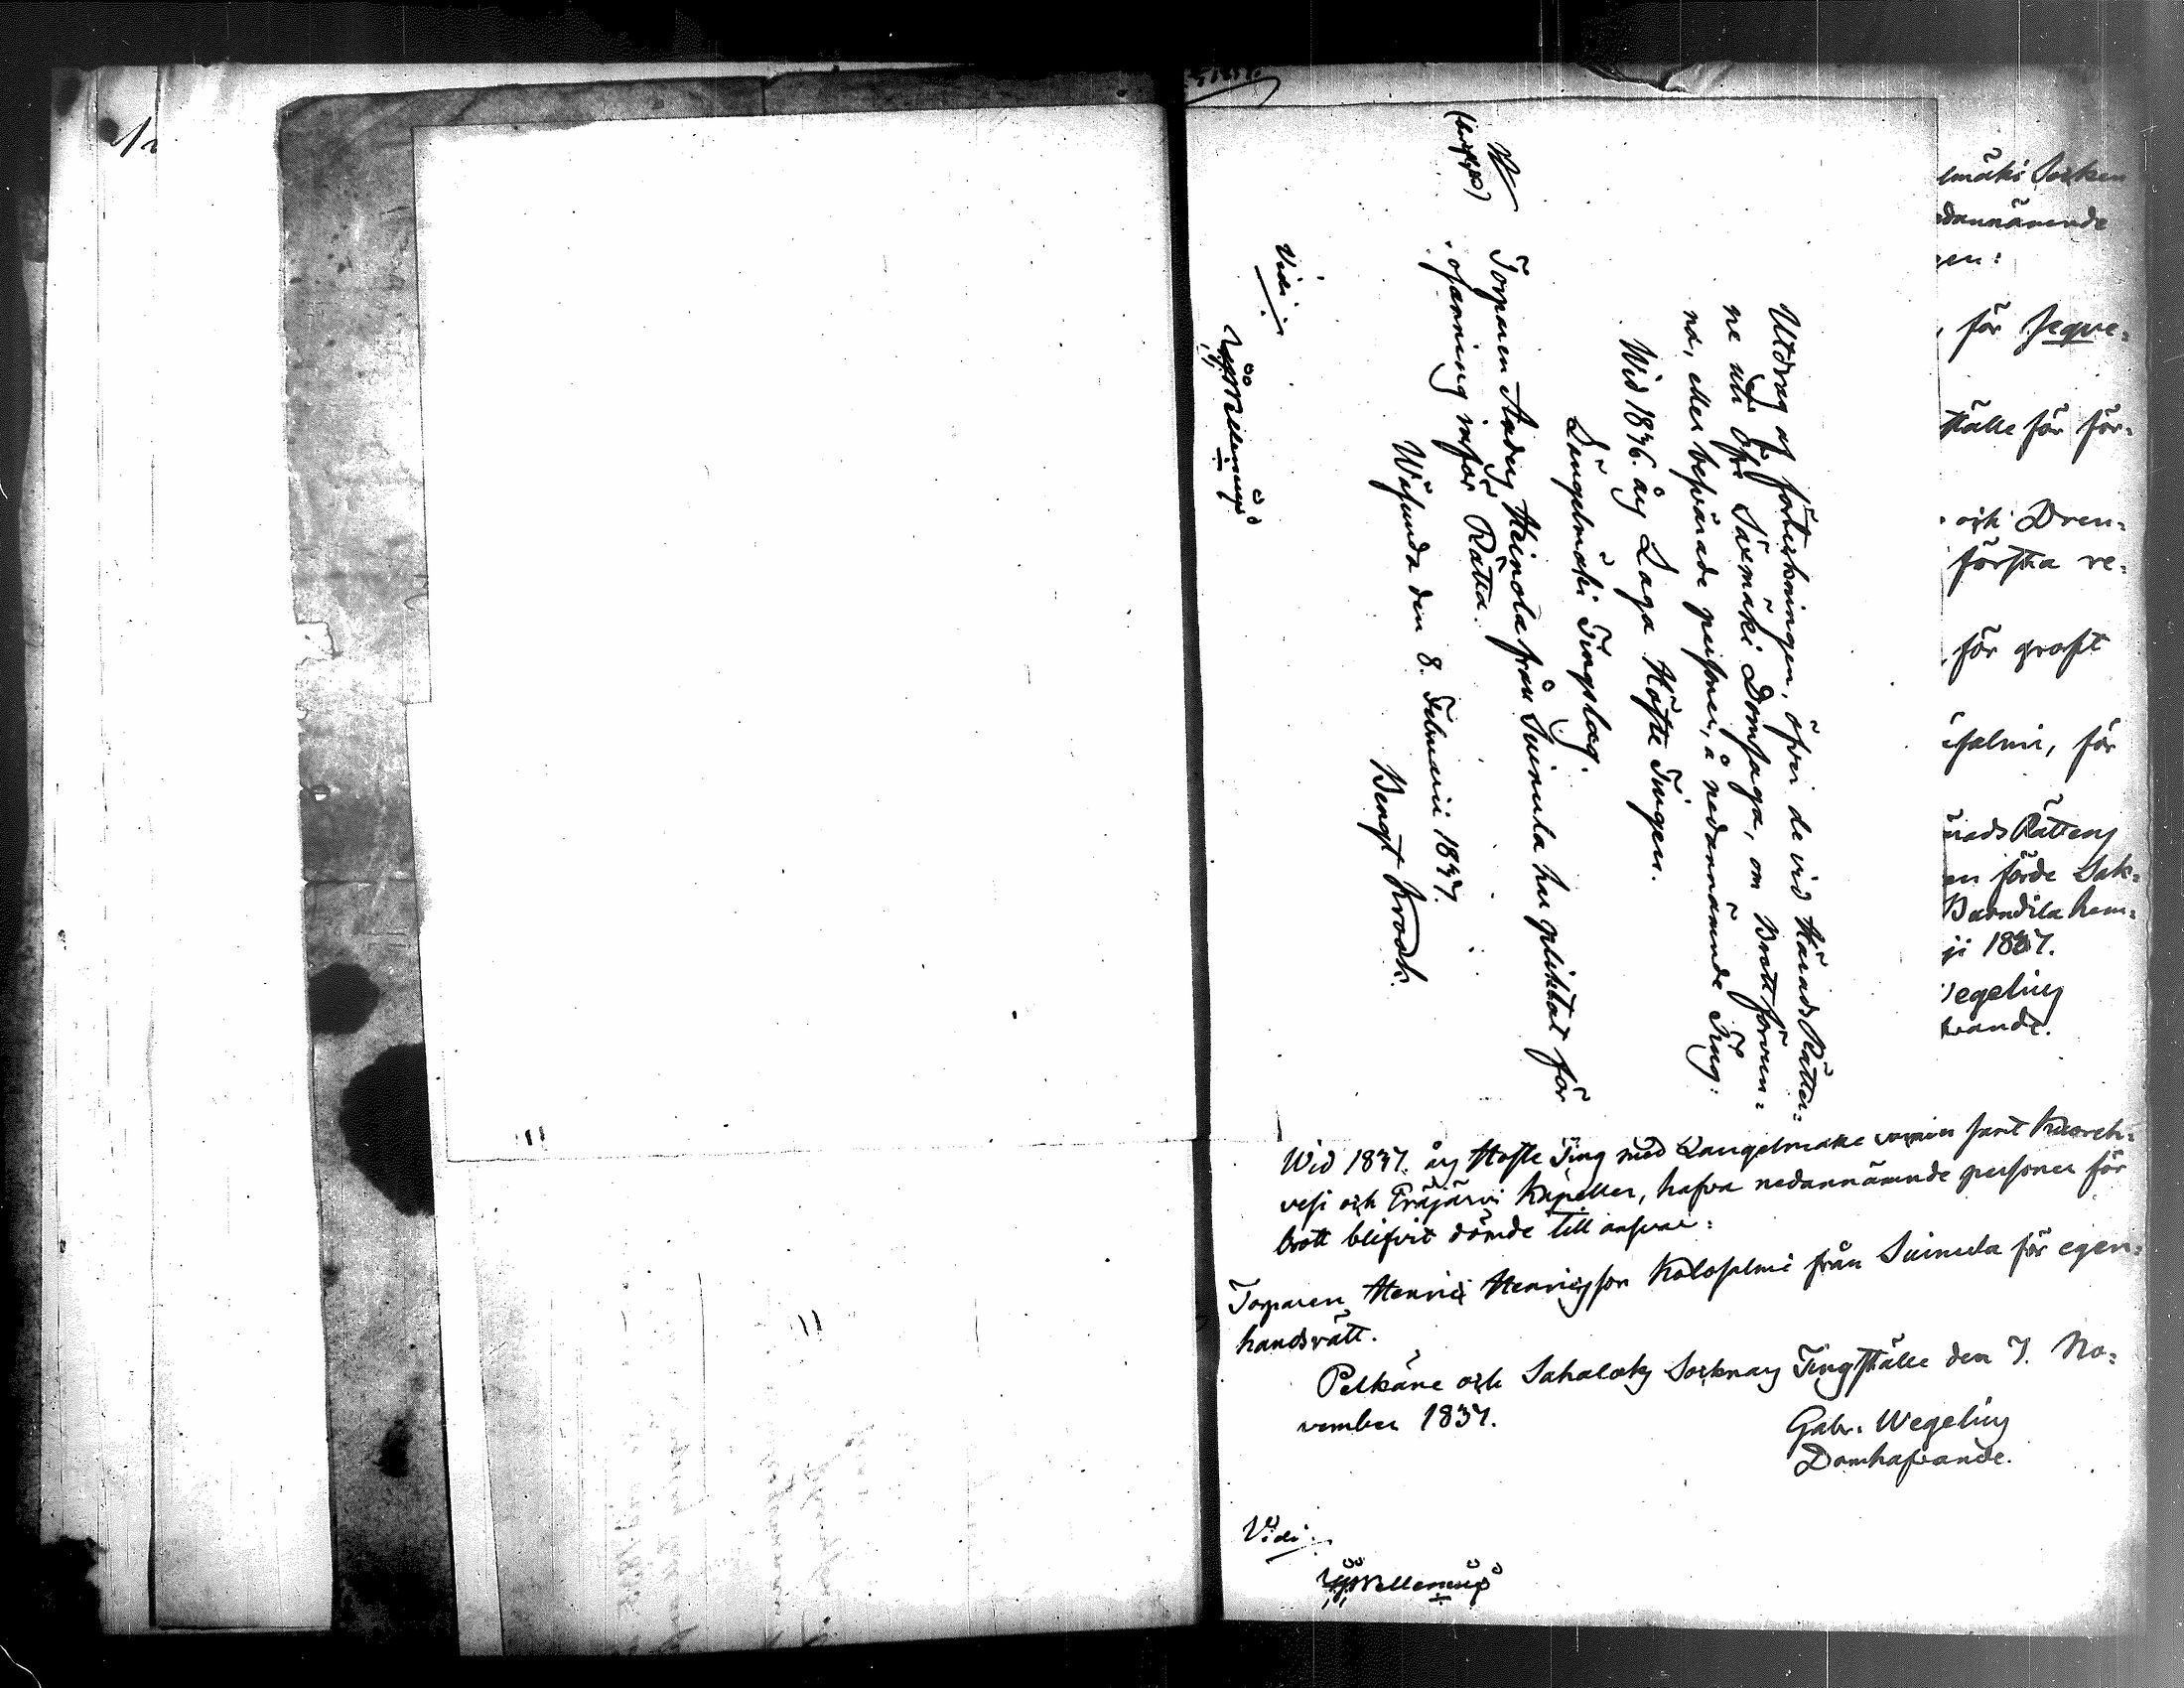 Utdrag af förtekningen, öfver de vid Härads Rätter=
ne uti Öfre Säxmäki Domsaga, om Brott förvun=
na, eller befriade personer, å nedannämnde Ting.
Wid 1836. års Laga Höste Tingen.
Längelmäki Tingslag.
Torparen Anders Heinola från Suinula har pliktat för
oljanning inför Rätta.
den 8. Februarii 1837.
Bengt Krook.
Vidi
lmäki Socken
dannämnde
en:
för seqve=
ställe för för=
och Dren=
första re=
för groft
salmi, för
rads Rättens
en förde Sak=
ji 1837.
egelius
vande.
Wid 1837. års Höste Ting med Längelmäke samt Kuoreh=
vesi och Eräjärvi Kapeller, hafva nedannämnde personer för
brott blifvit dömde till ansvar:
Torparen Henric Henricsson Kolosalmi från Suinula för egen=
handsrätt.
Pelkäne och Sahalaks Socknars Tingställe den 7. No=
vember 1837.
Gabr. Wegelius
Domhafvande.
Vidi